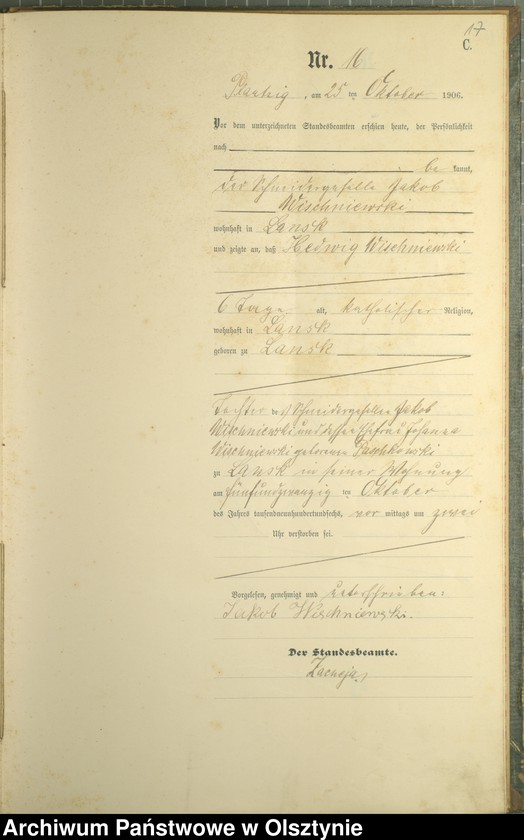 17
C.
Nr. 16
am 25 ten Oktober 1906.
Vor dem unterzeichneten Standesbeamten erschien heute, der Persönlichkeit
nach
be kannt,
der Schneidergeselle Jakob
Wischniewski
wohnhaft in Lansk
und zeigte an, daß Hedwig Wischniewski
6 Tage alt, katholischer Religion,
wohnhaft in Lansk
geboren zu Lansk
Tochter des Schneidergesellen Jakob
Wischniewski und dessen Ehefrau Johanna
Wischniewski geborenen
zu Lansk in seiner Wohnung
am fünfundzwanzig ten Oktober
des Jahres tausendneunhundertundsechs, vor mittags um zwei
Uhr verstorben sei.
Vorgelesen, genehmigt und unterschrieben:
Jakob Wischniewski.
Der Standesbeamte.
Archiwum Państwowe w Olsztynie